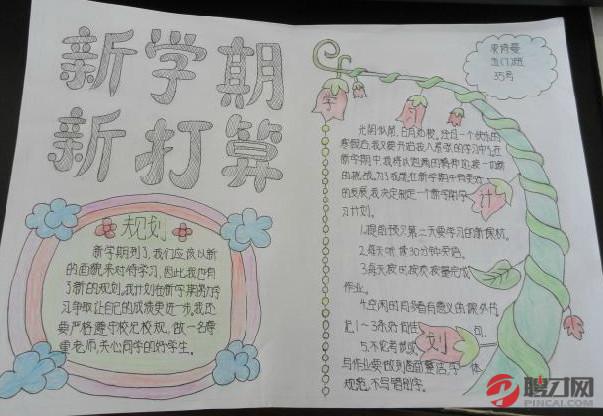 新学期
新打算
规划
新学期到了,我们应该以新
的面貌来对待学习,因此,我也有
了新的规划。我计划在新学期努力学
习争取让自己的成绩更进一步,我还
要严格遵守校纪校规,做一名尊
重老师,关心同学的好学生。
五(7)班
35号
学
习
计
划
光阴似箭,日月如梭。经过一个快乐的
寒假后,我又要开始投入紧张的学习中。在
新学期中,我将以饱满的精神迎接一切新
的挑战。为了我能在新学期中有更好
的发展,我决定制定一个新学期学
习计划。
1.提前预习第二天要学习的新课材。
2.每天听读30分钟英语。
3.每天按时按质按量完成
作业。
4.空闲的时间看有意义的课外书,
记1~3条好词佳句。
5.不论考试或
写作业要做到卷面整洁,字体
规范,不写错别字。
聘才网
PINCAI.COM